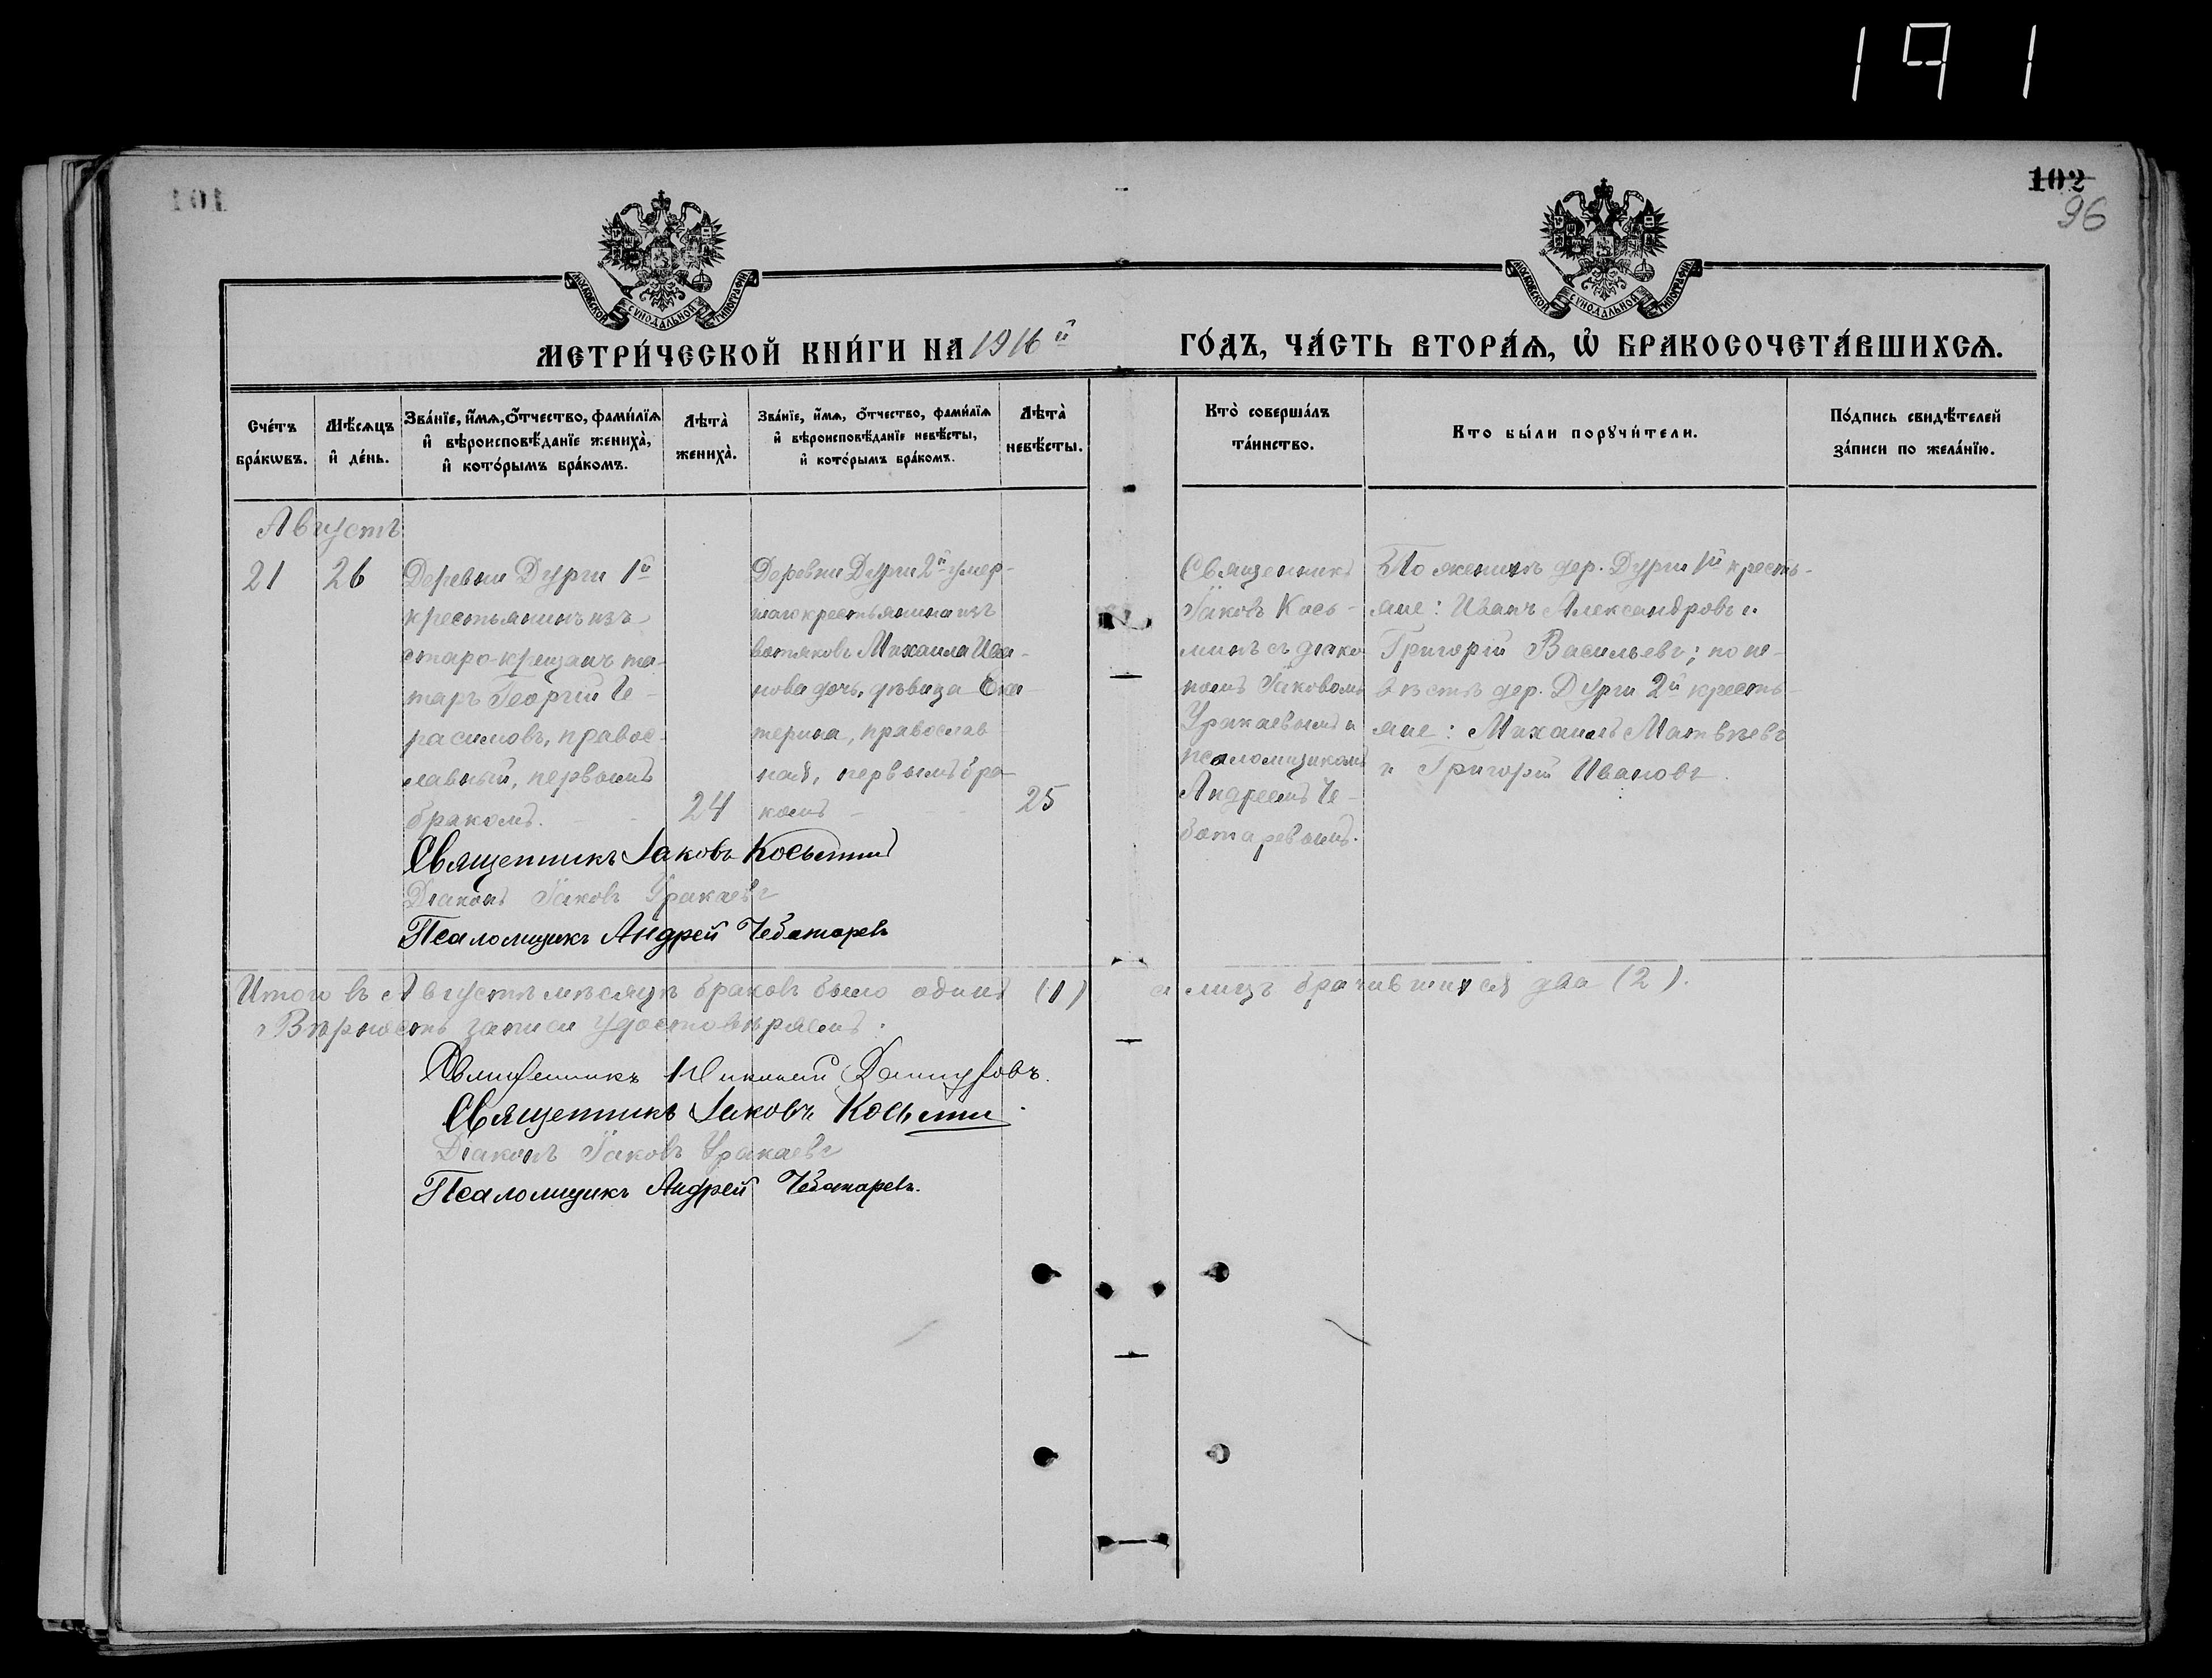 191
101
102
96
МОСКОВСКОЙ СѴНОДАЛЬНОЙ ТИПОГРАФІИ
МОСКОВСКОЙ СѴНОДАЛЬНОЙ ТИПОГРАФІИ
МЕТРИ́ЧЕСКОЙ КНИ́ГИ НА 1916й
ГО́ДЪ, ЧА́СТЬ ВТОРА́Ѧ, Ѡ҆ БРАКОСОЧЕТА́ВШИХСѦ.
Сче́тъ
бра́кѡвъ.
Мѣ́сѧцъ
и҆ де́нь.
Зва́нїе, и҆́мѧ, ѻ҆́тчество, фами́лїѧ
и҆ вѣроисповѣ́данїе жениха̀,
и҆ кото́рымъ бра́комъ.
Лѣта̀
жениха̀.
Зва́нїе, и҆́мѧ, ѻ҆́тчество, фами́лїѧ
и҆ вѣроисповѣ́данїе невѣ́сты,
и҆ кото́рымъ бра́комъ.
Лѣта̀
невѣ́сты.
Кто̀ соверша́лъ
та́инство.
Кто бы́ли порꙋчи́тели.
По́дпись свидѣ́телей
за́писи по жела́нїю.
Августъ
21
26
Деревни Дурги 1й
крестьянинъ изъ
старо-крещанъ та-
таръ Георгій Ге-
расимовъ, правос-
лавный, первымъ
бракомъ.
24
Деревни Дурги 2й умер-
шаго крестьянина изъ
вотяковъ Михаила Ива-
нова дочь, дѣвица Ека-
терина, православ-
ная, первымъ бра-
комъ
25
Священникъ
Іаковъ Кось-
минъ съ діако-
номъ Іаковомъ
Уракаевымъ и
псаломщикомъ
Андреемъ Че-
ботаревымъ.
По женихѣ дер. Дурги 1й кресть-
яне: Иванъ Александровъ и
Григорій Васильевъ; по не-
вѣстѣ дер. Дурги 2й кресть-
яне: Михаилъ Матвѣевъ
и Григорій Ивановъ.
Священникъ Іаковъ Косьминъ
Діаконъ Іаковъ Уракаевъ
Псаломщикъ Андрей Чеботаревъ
Итого въ Августѣ мѣсяцѣ браковъ было одинъ (1) а лицъ брачившихся два (2).
Вѣрность записи удостовѣряемъ:
Священникъ
Священникъ Іаковъ Косьминъ
Діаконъ Іаковъ Уракаевъ
Псаломщикъ Андрей Чеботаревъ.